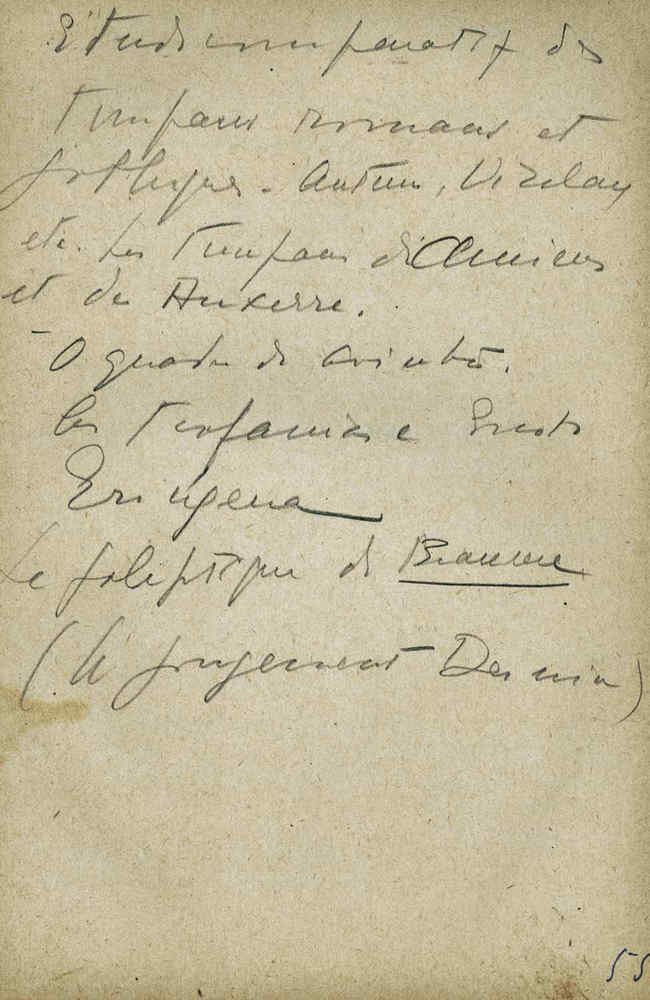 Etude comparatif des
timpans romans et
gothiques - Autun, Vezelay
etc. Les timpans d'Amiens
et de Auxerre.
- O quadro de
Les
Erigena
Le poliptique de Beaune
(le jugement Dernier)
55